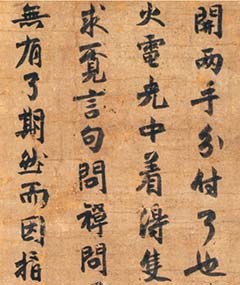 開兩手分付了也
火電光中着得隻
求覓言句問禪問
無有了期然而因指